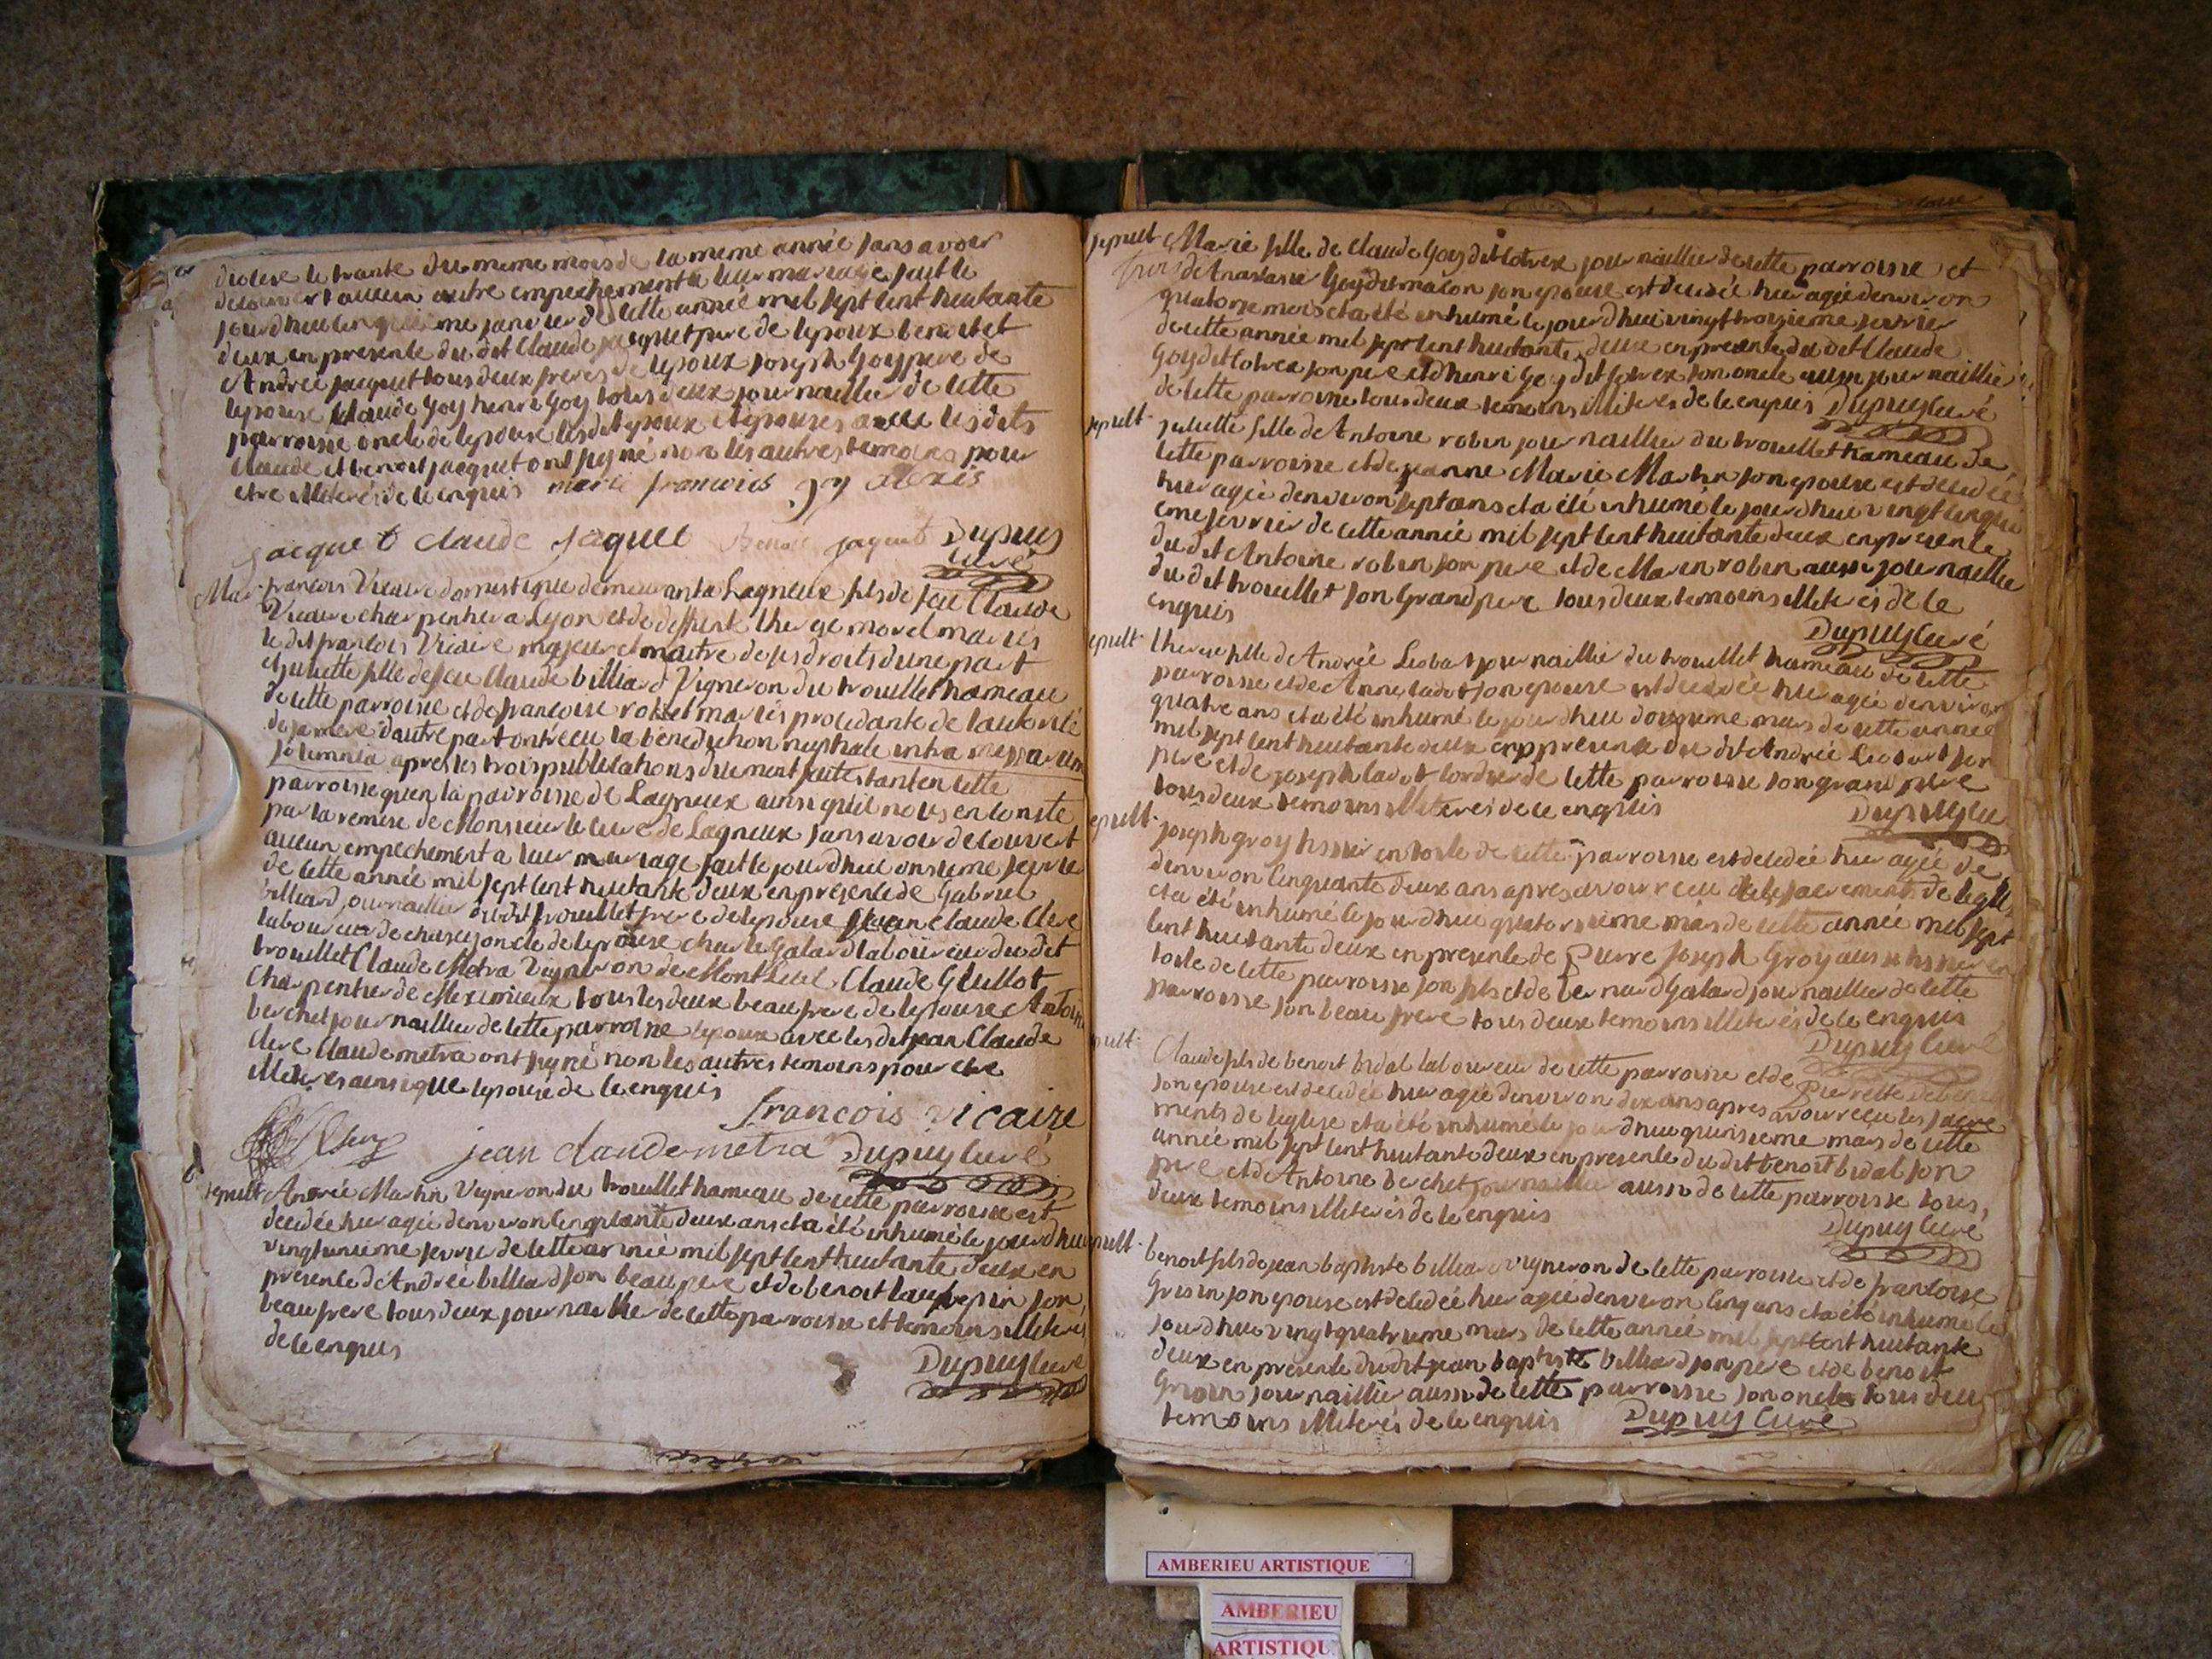 diolese le trante du meme mois de la meme année sans avoir
decouvert aucun autre empechement a leur mariage fait le
jourdhuy cinquieme janvier de cette année mil sept cent huitante
deux en presence du dit Claude jacquet pere de lepoux benoit et
Andrée jacquet tous deux freres de lepoux joseph Goy pere de
lepouse Claude Goy henri Goy tous deux journaillier de cette
parroisse oncle de lepouse les dits epoux et epouses avec les dits
Claude et benoit jacquet ont signé non les autres temoins pour
etre illiterés de ce enquis marie francois goy alexis
jacquet claude jaquet Benoit jaquet Dupuy
curé
Mar. francois Vicaire domestique demeurant a Lagneux fils de feu Claude
Vicaire charpentier a Lyon et de deffunte therese morel mariés
le dit francois Vicaire majeur et maitre de ses droits dune part
et juliette fille de feu Claude billiard Vigneron du trouillet hameau
de cette parroisse et de francoise robet mariés procedante de lautorité
de sa mere dautre part ont recu la benediction nuptiale intra missarum
solemnia apres les trois publications duement faites tant en cette
parroisse quen la parroisse de Lagneux ainsi quil nous en conste
par la remise de Monsieur le curé de Lagneux sans avoir decouvert
aucun empechement a leur mariage fait le jourdhui onsieme fevrier
de cette année mil sept cent huitante deux en presence de Gabriel
billiard journaillier du dit trouillet frere de lepouse jean Claude Clere
laboureur de chasey oncle de lepouse charle Galard laboureur du dit
trouillet Claude Metra Vigneron de Montluel Claude Guillot
Charpentier de Meximieux tous les deux beaufrere de lepouse Antoine
berchet journaillier de cette parroisse lepoux avec les dit jean Claude
Clere Claude metra ont signé non les autres temoins pour etre
illiterés ainsi que lepouse de ce enquis
francois vicaire
jean claude metra Dupuy curé
sepult Andrée Martin Vigneron du trouillet hameau de cette parroisse est
decedée hier agée denviron cinquante deux ans et a été inhumé le jourdhui
vingtunieme fevrier de cette année mil sept cent huitante deux en
presence dAndrée billiard son beaupere et de benoit son
beaufrere tous deux journaillier de cette parroisse et temoins illiterés
de ce enquis
Dupuy curé
sepult Marie fille de Claude Goy dit Cotrex journaillier de cette parroisse et
de Anastasie Goy dit macon son epouse est decedée hier agée denviron
quatorze mois et a été inhumé le jourdhui vingt troisieme fevrier
de cette année mil sept cent huitante deux en presence du dit Claude
Goy dit Cotrex son pere et dhenri Goy dit Cotrex son oncle aussi journaillié
de cette parroisse tous deux temoins illiterés de ce enquis Dupuy curé
sepult juliette fille de Antoine robin journaillier du trouillet hameau de
cette parroisse et de jeanne Marie Martin son epouse est decedée
hier agée denviron sept ans et a été inhumé le jourdhui vingt cinqui
eme fevrier de cette année mil sept cent huitante deux en presence
du dit Antoine robin son pere et de Marin robin aussi journaillier
du dit trouillet son Grand pere tous deux temoins illiterés de ce
enquis
Dupuy curé
sepult therese fille de Andrée Liobart journaillier du trouillet hameau de cette
parroisse et de Anne ladot son epouse est decedée hier agée denviron
quatre ans et a été inhumé le jourdhui dousieme mars de cette année
mil sept cent huitante deux en presence du dit Andrée Liobart son
pere et de joseph ladot cordier de cette parroisse son grand pere
tous deux temoins illiterés de ce enquis Dupuy cu
sepult joseph groy tissier en toile de cette parroisse est decedée hier agée de
denviron cinquante deux ans apres avoir recu les sacrements de legli
et a été inhumé le jourdhui quatorsieme mars de cette année mil sept
cent huitante deux en presence de Pierre joseph Groy aussi tissier en
toile de cette parroisse son fils et de bernard Galard journaillier de cette
parroisse son beau frere tous deux temoins illiterés de ce enquis
Dupuy curé
pult Claude fils de benoit bidal laboureur de cette parroisse et de Pierrette
son epouse est decedée hier agée denviron dix ans apres avoir recu les sacre
ments de leglise et a été inhumé le jourdhui quinsieme mars de cette
année mil sept cent huitante deux en presence du dit benoit bidal son
pere et de Antoine berchet journaillier aussi de cette parroisse tous
deux temoins illiterés de ce enquis
Dupuy curé
pult benoit fils de jean baptiste billiard vigneron de cette parroisse et de francoise
Grisin son epouse est decedée hier agée denviron cinq ans et a été inhumé le
jourdhui vingt quatrieme mars de cette année mil sept cent huitante
deux en presence du dit jean baptiste billiard son pere et de benoit
Grisin journaillier aussi de cette parroisse son oncle tous deux
temoins illiterés de ce enquis Dupuy curé
AMBERIEU ARTISTIQUE
AMBERIEU
ARTISTIQU